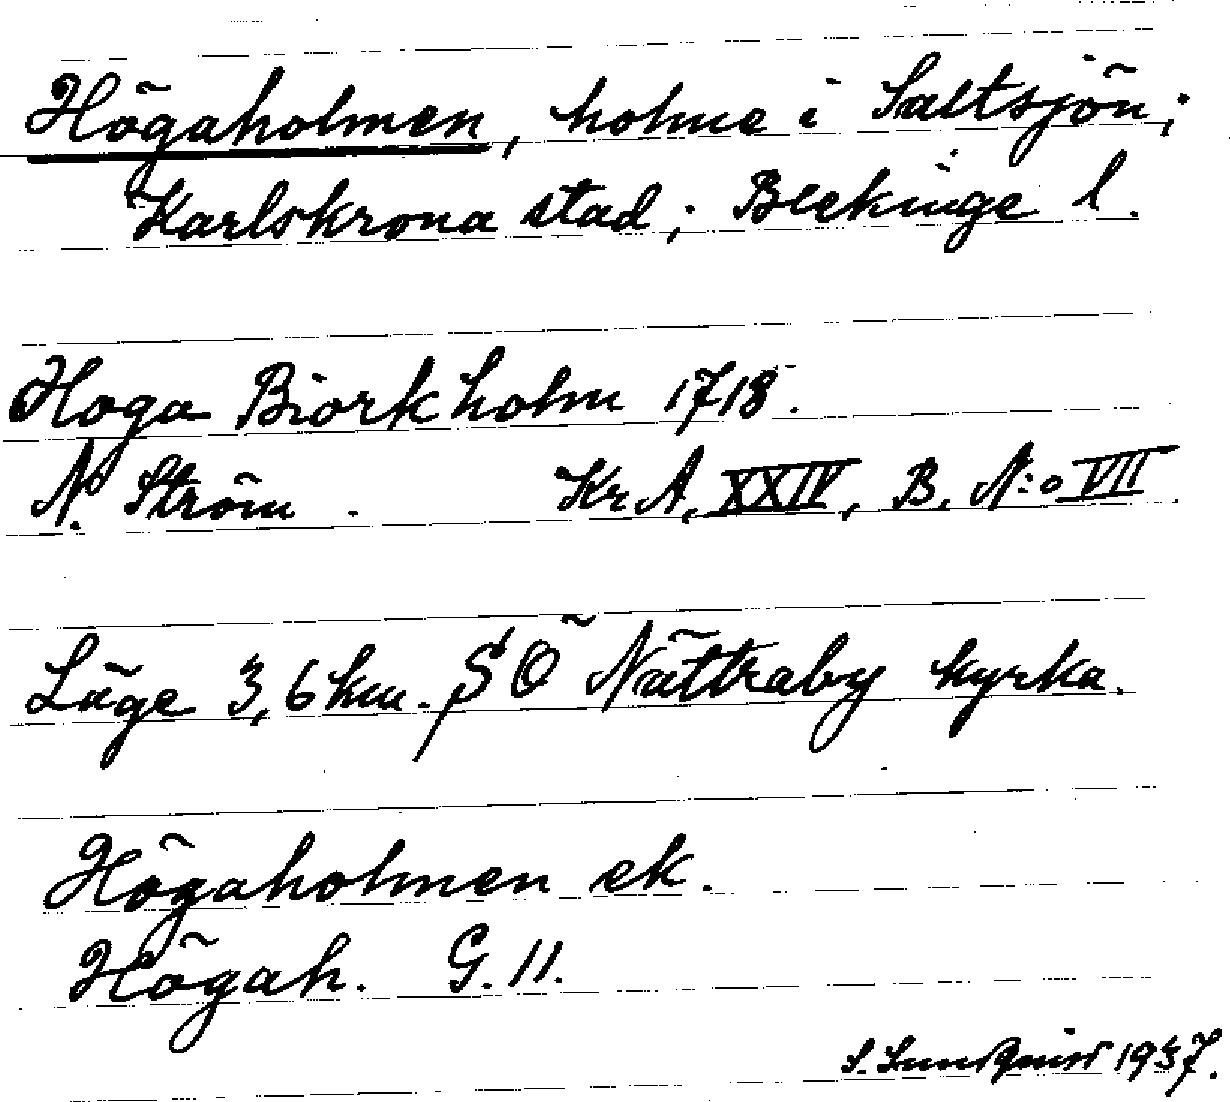 Högaholmen, holme i Saltsjön;
Karlskrona stad; Blekinge l.
Hoga Biorkholm 1718.
N. Ström. Kr A, XXIV, B, N:o VII
Läge 3,6 km. SÖ Nättraby kyrka.
Högaholmen ek.
Högah. G. 11.
S. Sundquist 1937.